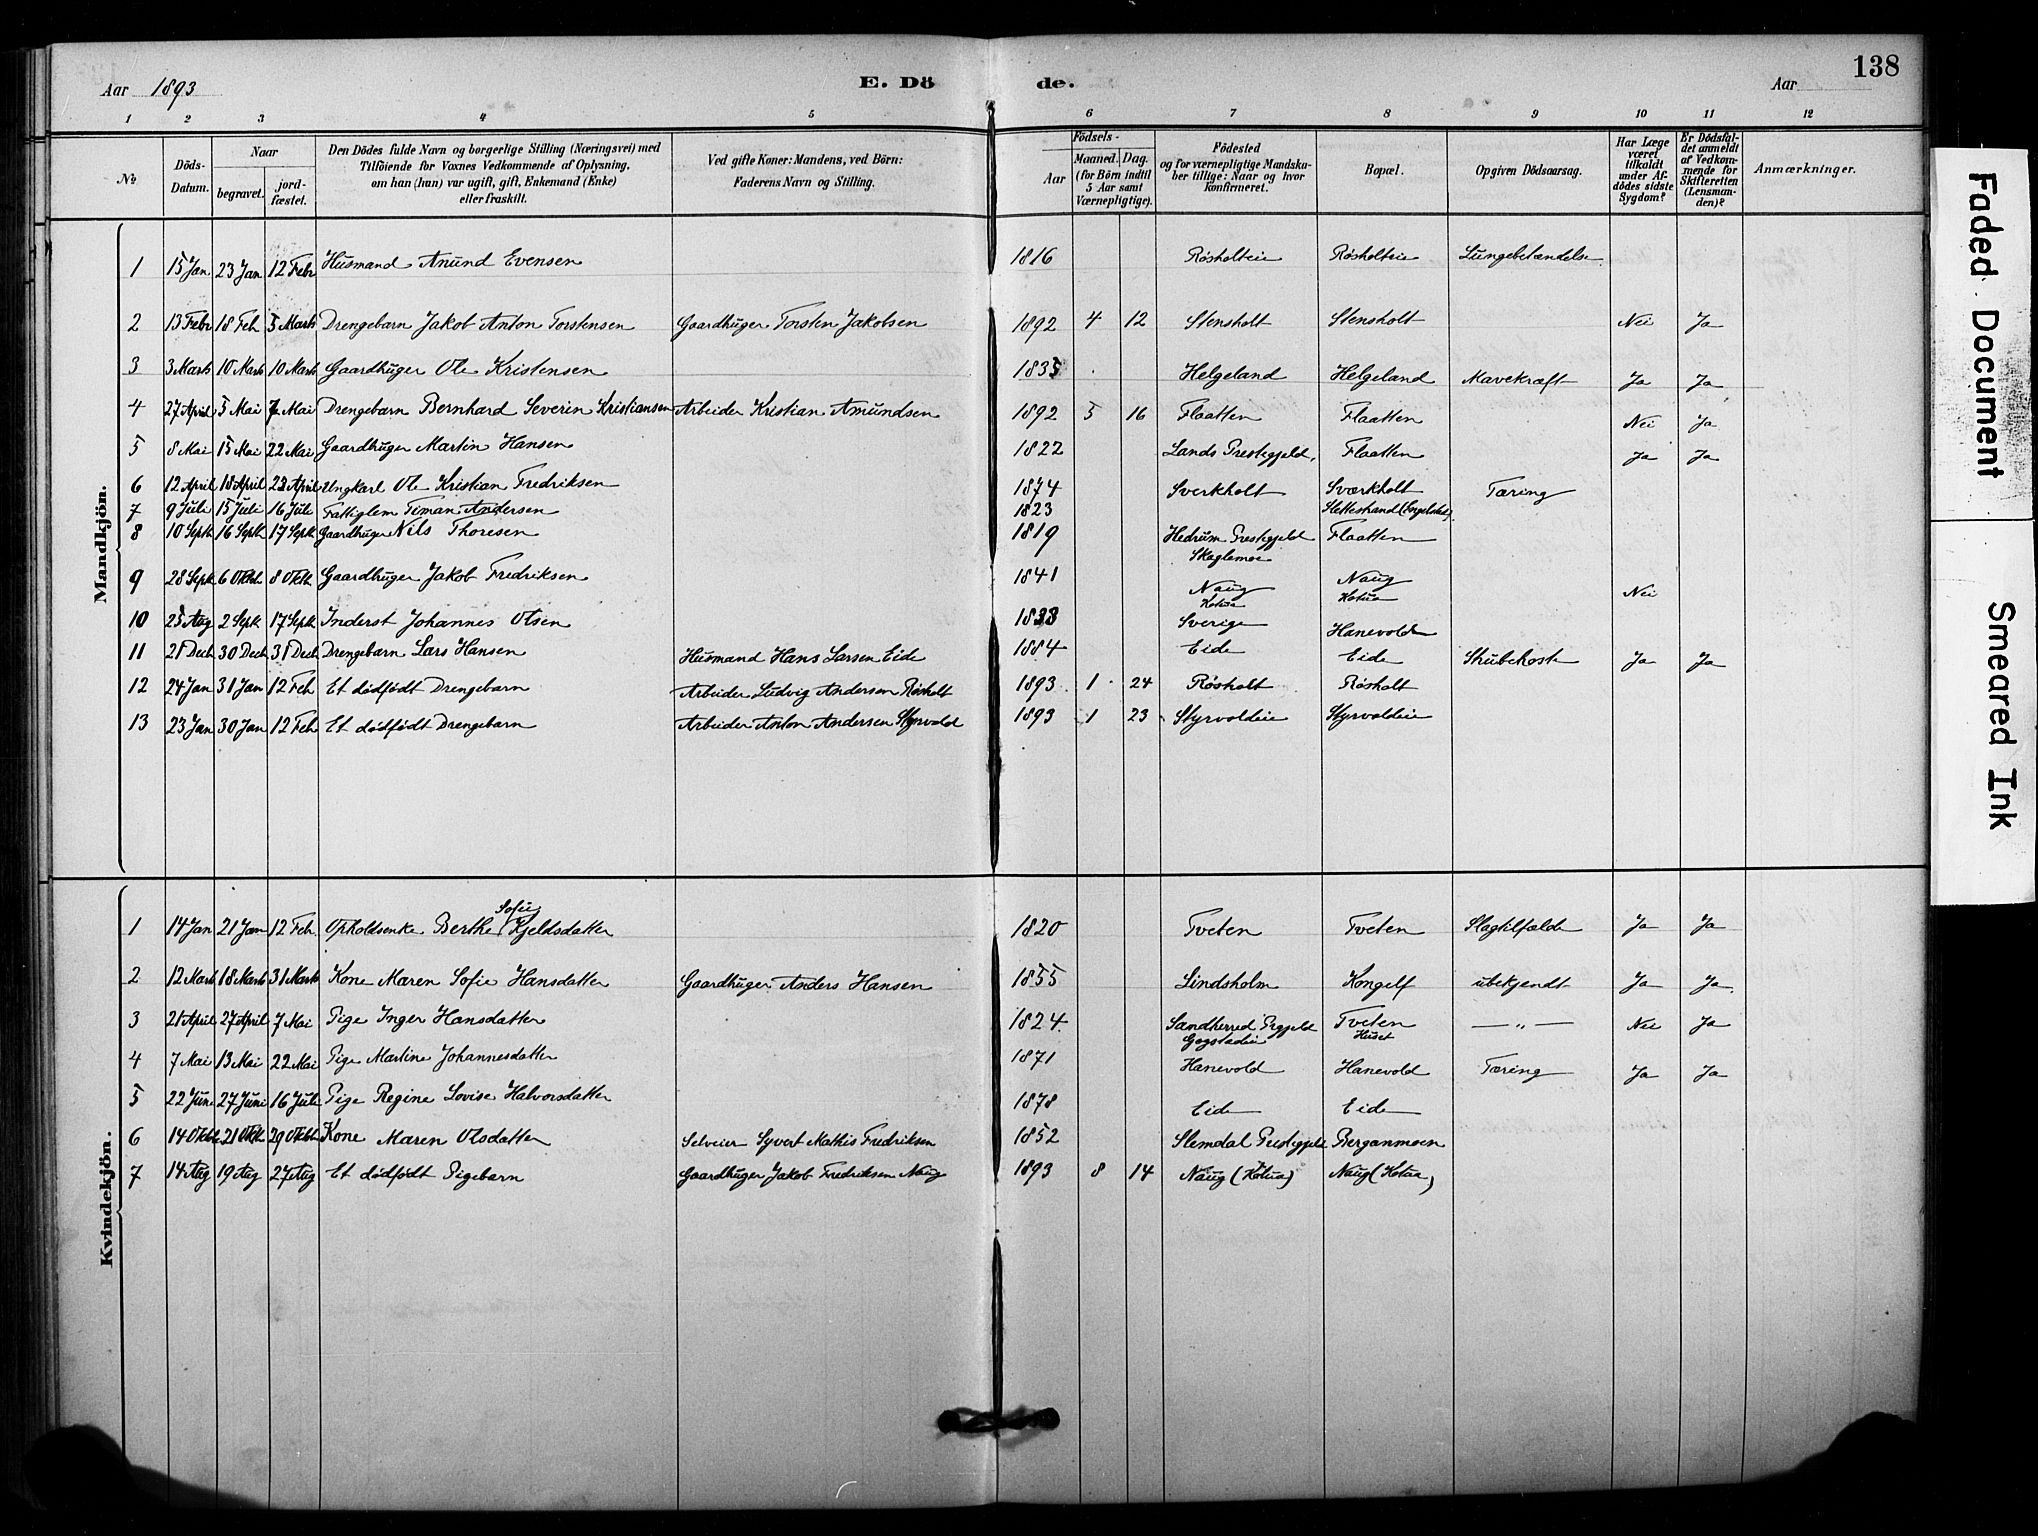 138
Aar 1893 E. Dö de. Aar
1 2 3 4 5 6 7 8 9 10 11 12
No Döds-Datum. Naar begravet. jord-fæstet. Den Dödes fulde Navn og borgerlige Stilling (Næringsvei) med Tilföiende for Voxnes Vedkommende af Oplysning, om han (hun) var ugift, gift, Enkemand (Enke) eller fraskilt. Ved gifte Koner: Mandens, ved Börn: Faderens Navn og Stilling. Födsels- Aar Maaned. Dag. (for Börn indtil 5 Aar samt Værnepligtige). Födested og for værnepligtige Mandskaber tillige: Naar og hvor konfirmeret. Bopæl. Opgiven Dödsaarsag. Har Læge været tilkaldt under Afdödes sidste Sygdom? Er Dödsfaldet anmeldt af Vedkommende for Skifteretten (Lensmanden)? Anmærkninger.
Mandkjön.
1 15 Jan 23 Jan 12 Febr Husmand Anund Evensen 1816 Røsholteie Røsholteie Lungebetændelse
2 13 Febr 18 Feb 5 Marts Drengebarn Jakob Anton Torstensen Gaardbruger Torsten Jakobsen 1892 4 12 Stensholt Stensholt Nei Ja
3 3 Marts 10 Marts 10 Marts Gaardbruger Ole Kristensen 1835 Helgeland Helgeland Mavekræft Ja Ja
4 27 April 5 Mai 7 Mai Drengebarn Bernhard Severin Kristiansen Arbeider Kristian Amundsen 1892 5 16 Flaatten Flaatten Nei Ja
5 8 Mai 15 Mai 22 Mai Gaardbruger Martin Hansen 1822 Lands Prestegjeld, Flaatten Ja Ja
6 12 April 18 April 23 April Ungkarl Ole Kristian Fredriksen 1874 Sverkholt Sværkholt Tæring
7 9 Juli 15 Juli 16 Juli Fattiglem Timan Andersen 1823
8 10 Septb 16 Septb 17 Septb Gaardbruger Nils Thoresen 1819 Hedrum Prestegjeld Skaglemoe Flaatten
9 28 Septb 6 Oktb 8 Oktb Gaardbruger Jakob Fredriksen 1841 Naug Kotua Naug Kotua Nei
10 25 Aug 2 Septb 17 Septb Inderst Johannes Olsen 1833 Sverige Hanevold
11 21 Decb 30 Decb 31 Decb Drengebarn Lars Hansen Husmand Hans Larsen Eide 1884 Eide Eide Strubehoste Ja Ja
12 24 Jan 31 Jan 12 Feb Et dödfödt Drengebarn Arbeider Ludvig Andersen Røsholt 1893 1 24 Røsholt Røsholt
13 23 Jan 30 Jan 12 Feb Et dödfödt Drengebarn Arbeider Anton Andersen Styrvold 1893 1 23 Styrvoldeie Styrvoldeie
Kvindekjön.
1 14 Jan 21 Jan 12 Feb Opholdsenke Berthe Sofie Kjeldsdatter 1820 Tveten Tveten Slagtilfælde Ja Ja
2 12 Marts 18 Marts 31 Marts Kone Maren Sofie Hansdatter Gaardbruger Anders Hansen 1855 Lindsholm Kongelf ubekjendt Ja Ja
3 21 April 27 April 7 Mai Pige Inger Hansdatter 1824 Sandherred Prgjeld Gogstadeie Tveten Huset — " — Nei Ja
4 7 Mai 13 Mai 22 Mai Pige Martine Johannesdatter 1871 Hanevold Hanevold Tæring Ja Ja
5 22 Juni 27 Juni 16 Juli Pige Regine Lovise Halvorsdatter 1878 Eide Eide
6 14 Oktb 21 Oktb 29 Oktb Kone Maren Olsdatter Selveier Syvert Mathis Fredriksen 1852 Slemdal Prestegjeld Berganmoen
7 14 Aug 19 Aug 27 Aug Et dödfödt Pigebarn Gaardbruger Jakob Fredriksen Naug 1893 8 14 Naug (Kotua) Naug (Kotua)
Faded Document
Smeared Ink